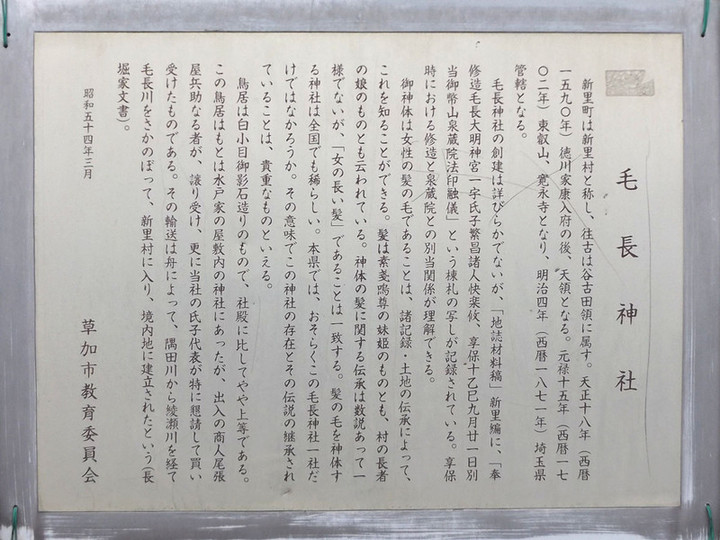 毛長神社
新里町は新里村と称し、往古は谷古田領に属す。天正十八年（西暦
一五九〇年）徳川家康入府の後、天領となる。元禄十五年（西暦一七
〇二年）東叡山、寛永寺となり、明治四年（西暦一八七一年）埼玉県
管轄となる。
毛長神社の創建は詳びらかでないが、「地誌材料稿」新里編に、「奉
修造毛長大明神宮一宇氏子繁昌諸人快楽候、享保十乙巳九月廿一日別
当御幣山泉蔵院法印融儀」という棟札の写しが記録されている。享保
時における修造と泉蔵院との別当関係が理解できる。
御神体は女性の髪の毛であることは、諸記録・土地の伝承によって、
これを知ることができる。髪は素戔嗚尊の妹姫のものとも、村の長者
の娘のものとも云われている。神体の髪に関する伝承は数説あって一
様でないが、「女の長い髪」であることは一致する。髪の毛を神体す
る神社は全国でも稀らしい。本県では、おそらくこの毛長神社一社だ
けではなかろうか。その意味でこの神社の存在とその伝説の継承され
ていることは、貴重なものといえる。
鳥居は白小目御影石造りのもので、社殿に比してやや上等である。
この鳥居はもとは水戸家の屋敷内の神社にあったが、出入の商人尾張
屋兵助なる者が、譲り受け、更に当社の氏子代表が特に懇請して買い
受けたものである。その輸送は舟によって、隅田川から綾瀬川を経て
毛長川をさかのぼって、新里村に入り、境内地に建立されたという（長
堀家文書）。
昭和五十四年三月
草加市教育委員会